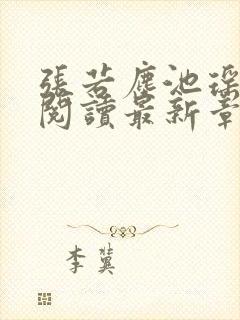 張若塵池瑤
閱讀最新章
李冀